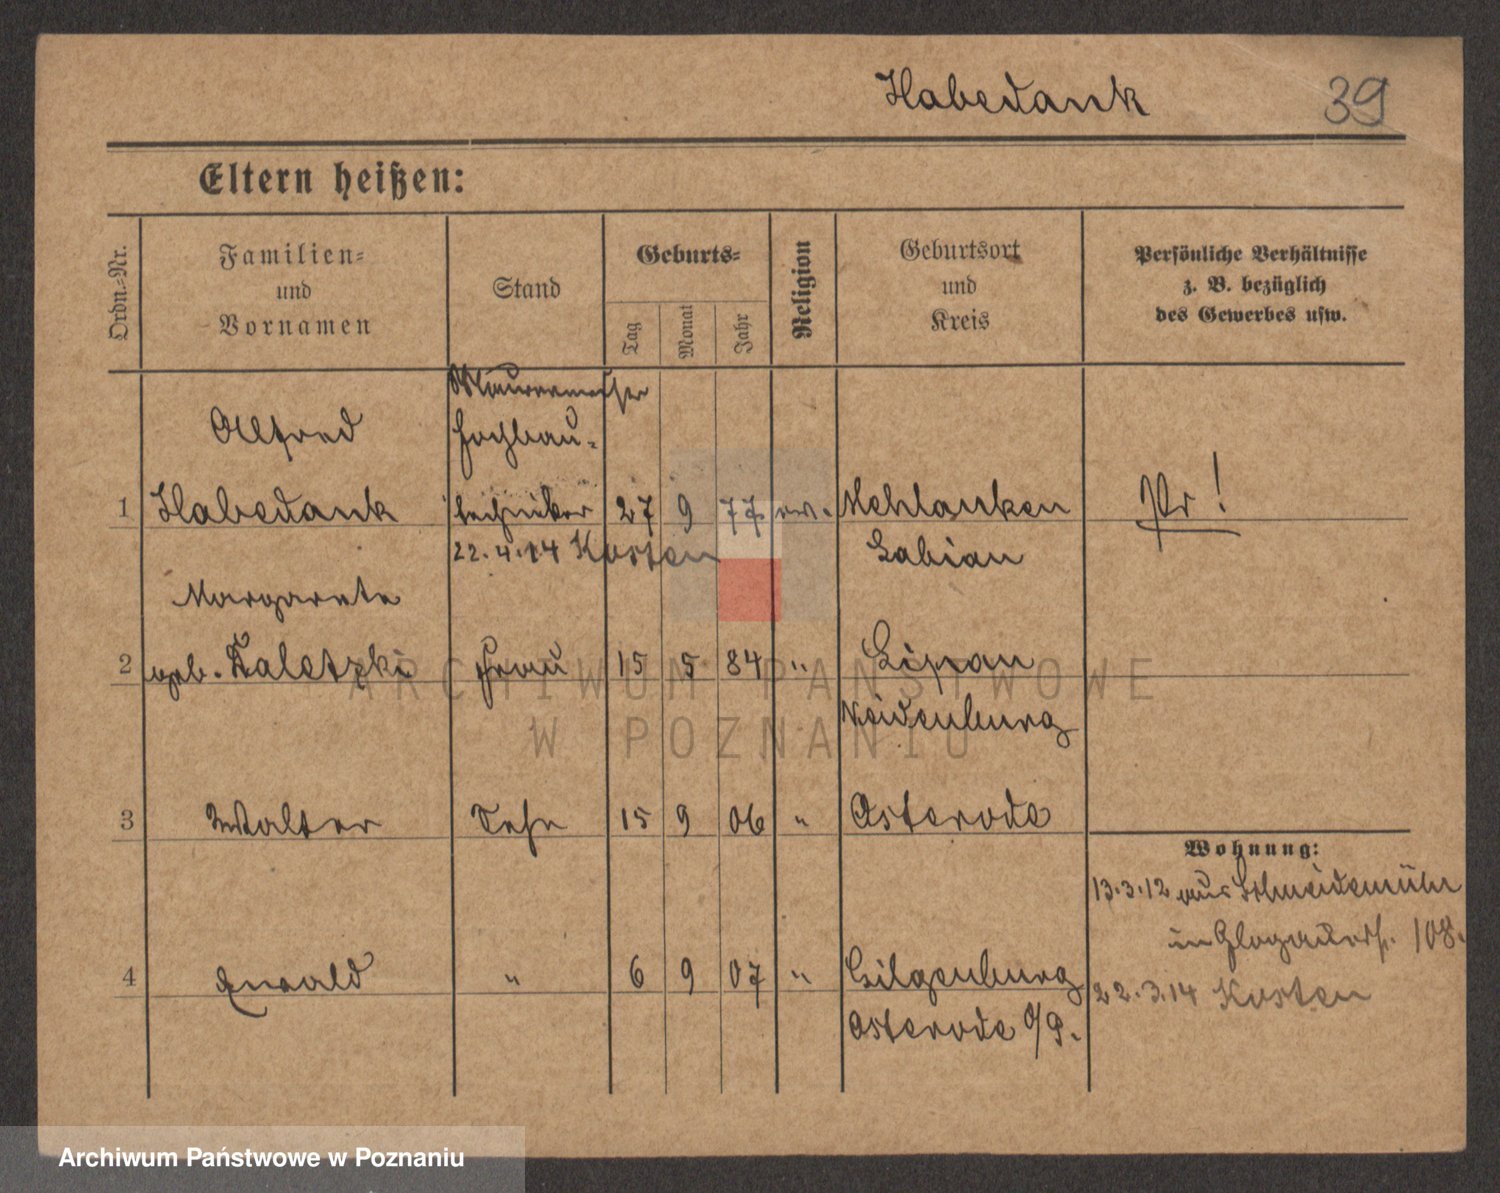 Habedank 39
Eltern heißen:
Ordn.=Nr.
Familien=
und
Vornamen
Stand
Geburts=
Tag
Monat
Jahr
Religion
Geburtsort
und
Kreis
Persönliche Verhältnisse
z. B. bezüglich
des Gewerbes usw.
Maurermeister
Alfred Hochbau-
1 Habedank techniker 27 9 77 ev. Mehlauken Pr!
22.4.14 Kosten Labiau
Margarete
2 geb. Kaletzki Frau 15 5 84 " Lipau
Neidenburg
3 Walter Sohn 15 9 06 " Osterode
Wohnung:
13.3.12 aus Schneidemühl
in Glogauerstr. 108.
4 Ewald " 6 9 07 " Gilgenburg
22.3.14 Kosten
Osterode O/P.
ARCHIWUM PAŃSTWOWE
W POZNANIU
Archiwum Państwowe w Poznaniu